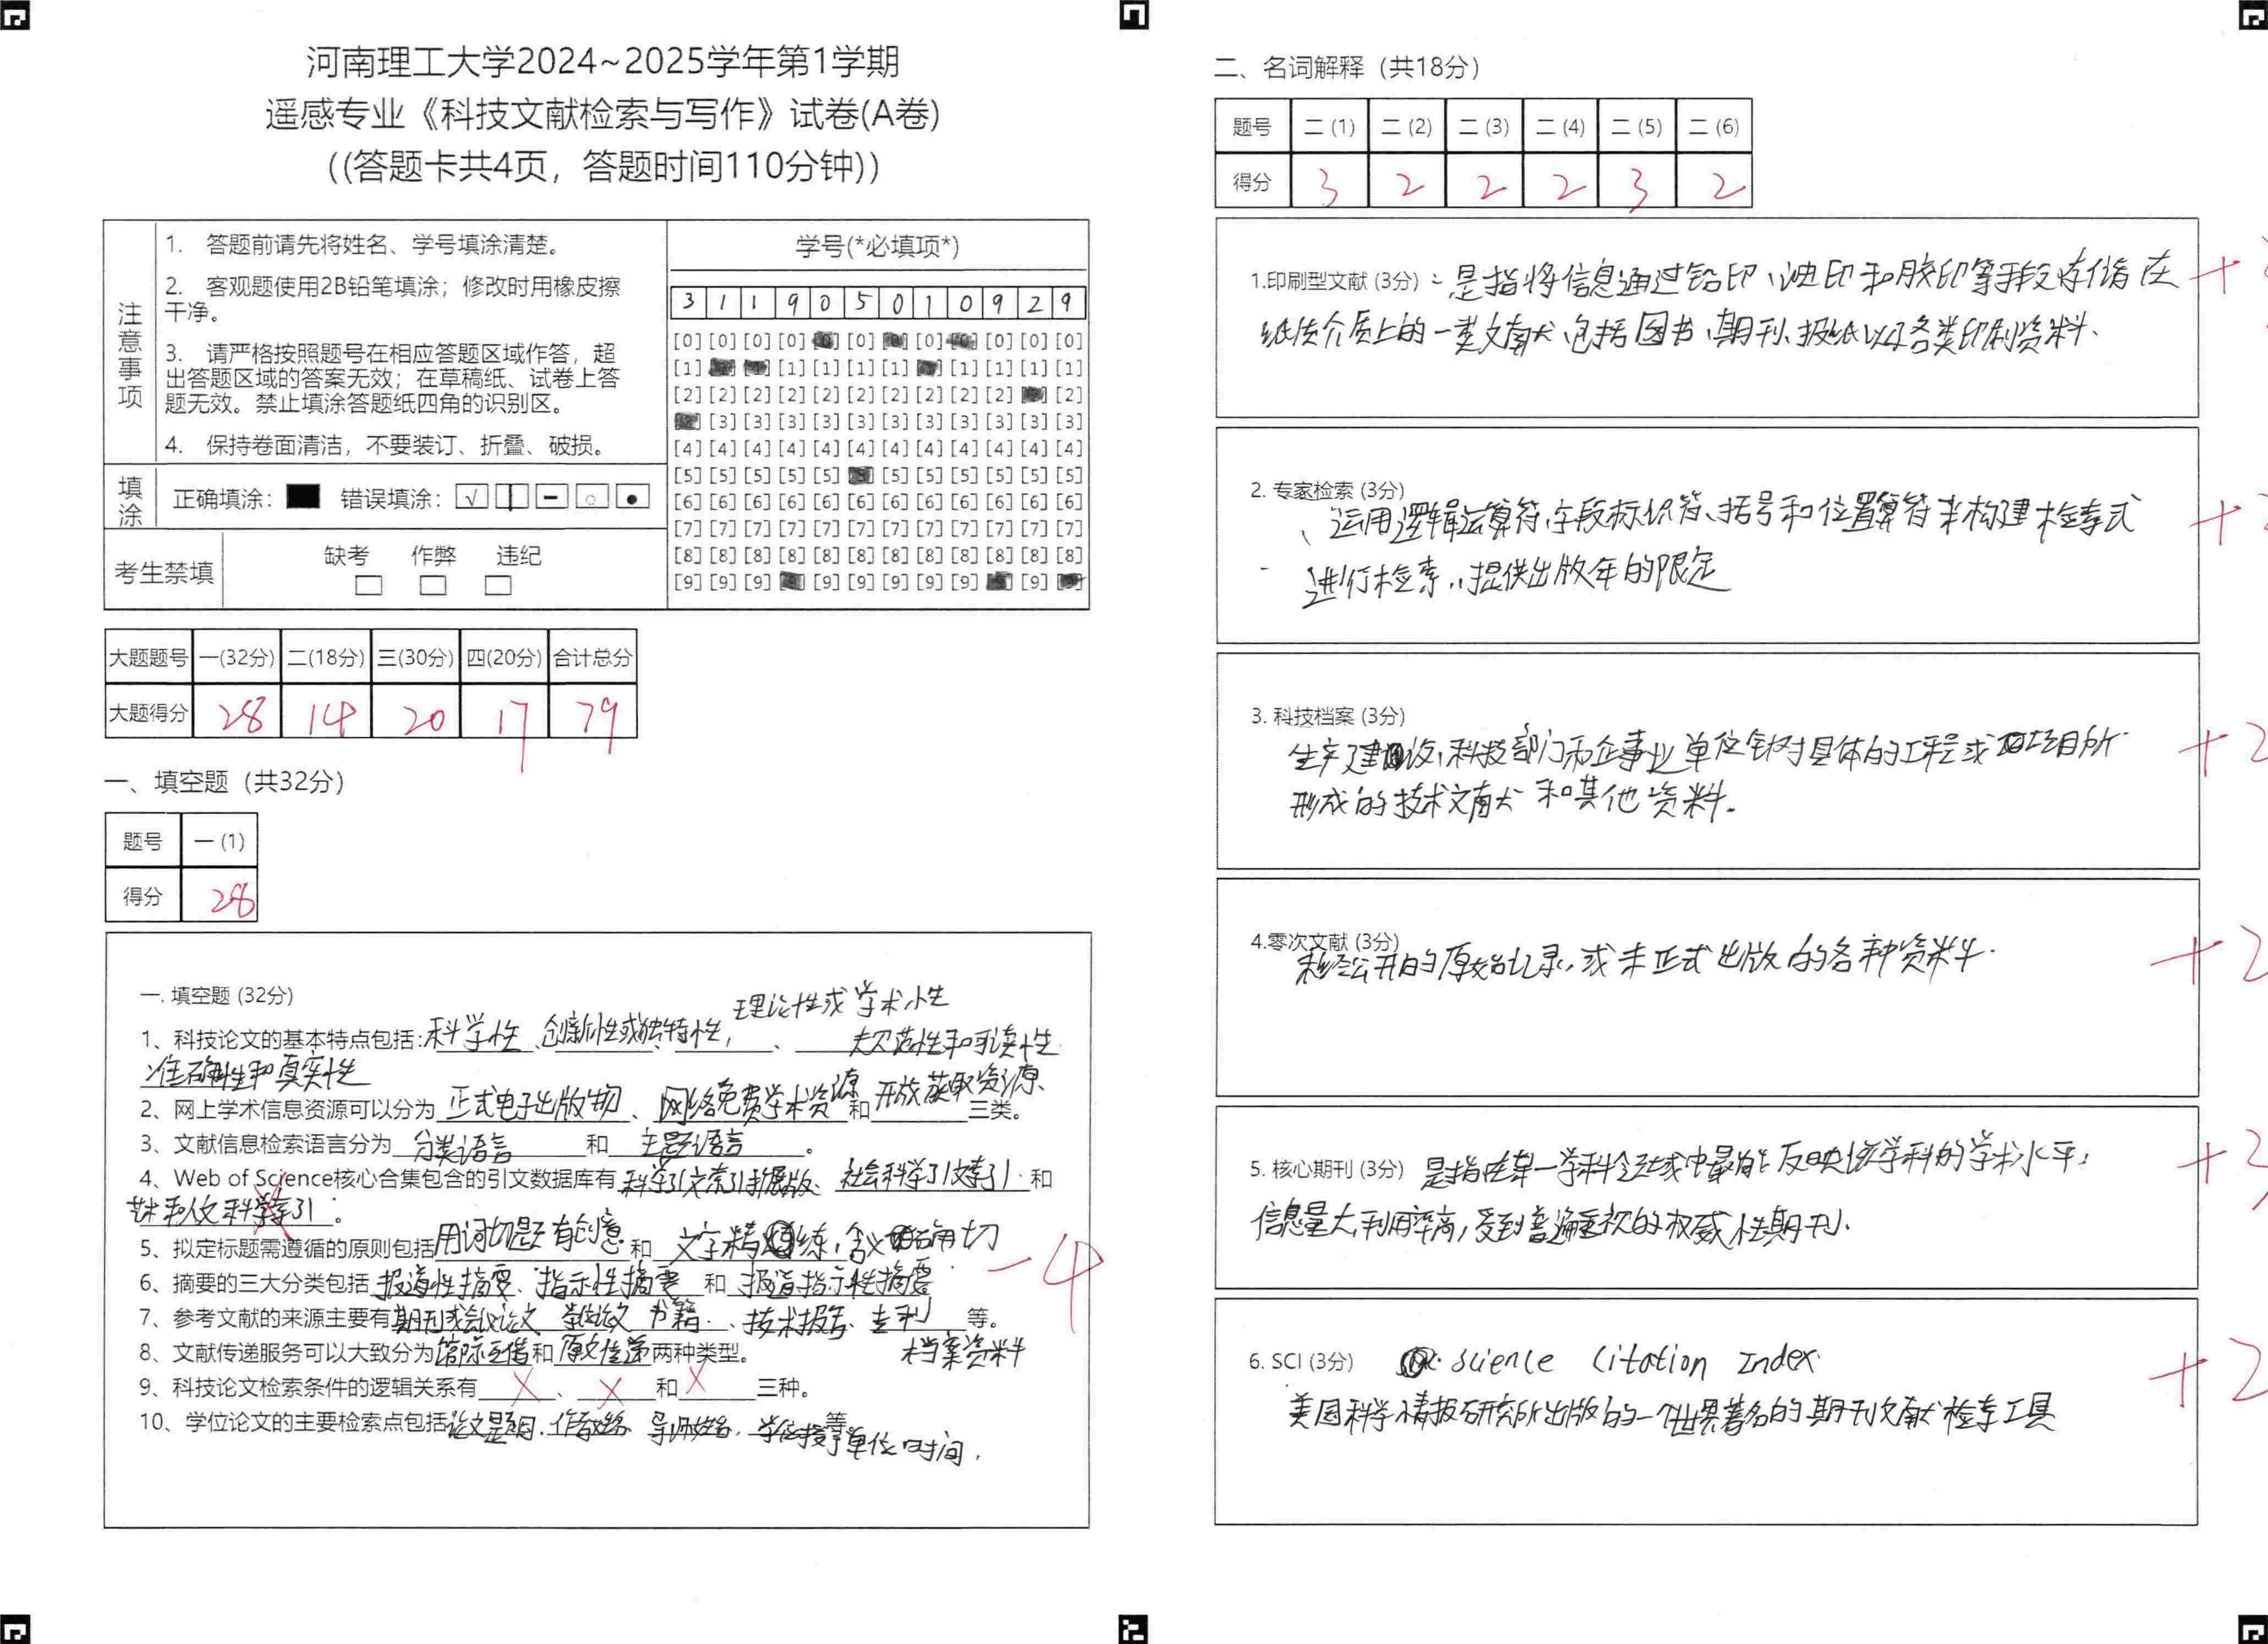 河南理工大学2024~2025学年第1学期
遥感专业《科技文献检索与写作》试卷(A卷)
((答题卡共4页，答题时间110分钟))
注意事项
1. 答题前请先将姓名、学号填涂清楚。
2. 客观题使用2B铅笔填涂；修改时用橡皮擦
干净。
3. 请严格按照题号在相应答题区域作答，超
出答题区域的答案无效；在草稿纸、试卷上答
题无效。禁止填涂答题纸四角的识别区。
4. 保持卷面清洁，不要装订、折叠、破损。
填涂 正确填涂： 错误填涂：
考生禁填 缺考 作弊 违纪
学号(*必填项*)
3 1 1 9 0 5 0 1 0 9 2 9
[0] [0] [0] [0] [0] [0] [0] [0] [0] [0] [0] [0]
[1] [1] [1] [1] [1] [1] [1] [1] [1] [1] [1] [1]
[2] [2] [2] [2] [2] [2] [2] [2] [2] [2] [2] [2]
[3] [3] [3] [3] [3] [3] [3] [3] [3] [3] [3] [3]
[4] [4] [4] [4] [4] [4] [4] [4] [4] [4] [4] [4]
[5] [5] [5] [5] [5] [5] [5] [5] [5] [5] [5] [5]
[6] [6] [6] [6] [6] [6] [6] [6] [6] [6] [6] [6]
[7] [7] [7] [7] [7] [7] [7] [7] [7] [7] [7] [7]
[8] [8] [8] [8] [8] [8] [8] [8] [8] [8] [8] [8]
[9] [9] [9] [9] [9] [9] [9] [9] [9] [9] [9] [9]
大题题号 一(32分) 二(18分) 三(30分) 四(20分) 合计总分
大题得分 28 14 20 17 79
一、填空题（共32分）
题号 一 (1)
得分 28
一. 填空题 (32分)
理论性或学术性
1、科技论文的基本特点包括:科学性、创新性或独特性, 、 规范性和可读性
准确性和真实性
2、网上学术信息资源可以分为 正式电子出版物、网络免费学术资源和开放获取资源三类。
3、文献信息检索语言分为 分类语言 和 主题语言 。
4、Web of Science核心合集包含的引文数据库有 科学引文索引扩展版、社会科学引文索引 和
艺术和人文科学索引。
5、拟定标题需遵循的原则包括用词切题有创意 和 文字精练,含义确切
-4
6、摘要的三大分类包括 报道性摘要、指示性摘要 和 报道指示性摘要
7、参考文献的来源主要有期刊或会议论文 学位论文 书籍、技术报告、专利 等。
档案资料
8、文献传递服务可以大致分为馆际互借和原文传递两种类型。
9、科技论文检索条件的逻辑关系有 、 和 三种。
10、学位论文的主要检索点包括论文题目、作者姓名、导师姓名、学位授予单位、时间, 等。
二、名词解释（共18分）
题号 二 (1) 二 (2) 二 (3) 二 (4) 二 (5) 二 (6)
得分 3 2 2 2 3 2
1.印刷型文献 (3分) : 是指将信息通过铅印、油印和胶印等手段存储在
纸质介质上的一类文献、包括图书、期刊、报纸以及各类印刷资料.
2. 专家检索 (3分)
、运用逻辑运算符,字段标识符、括号和位置算符来构建检索式
进行检索,,提供出版年的限定
3. 科技档案 (3分)
生产建设,科技部门和企事业单位针对具体的工程或项目所
形成的技术文献和其他资料.
+2
4.零次文献 (3分)
未经公开的原始记录,或未正式出版的各种资料.
+2
5. 核心期刊 (3分) 是指在某一学科领域中最能反映该学科的学术水平,
信息量大,利用率高,受到普遍重视的权威性期刊.
+3
6. SCI (3分) Science Citation Index
美国科学情报研究所出版的一个世界著名的期刊文献检索工具
+2